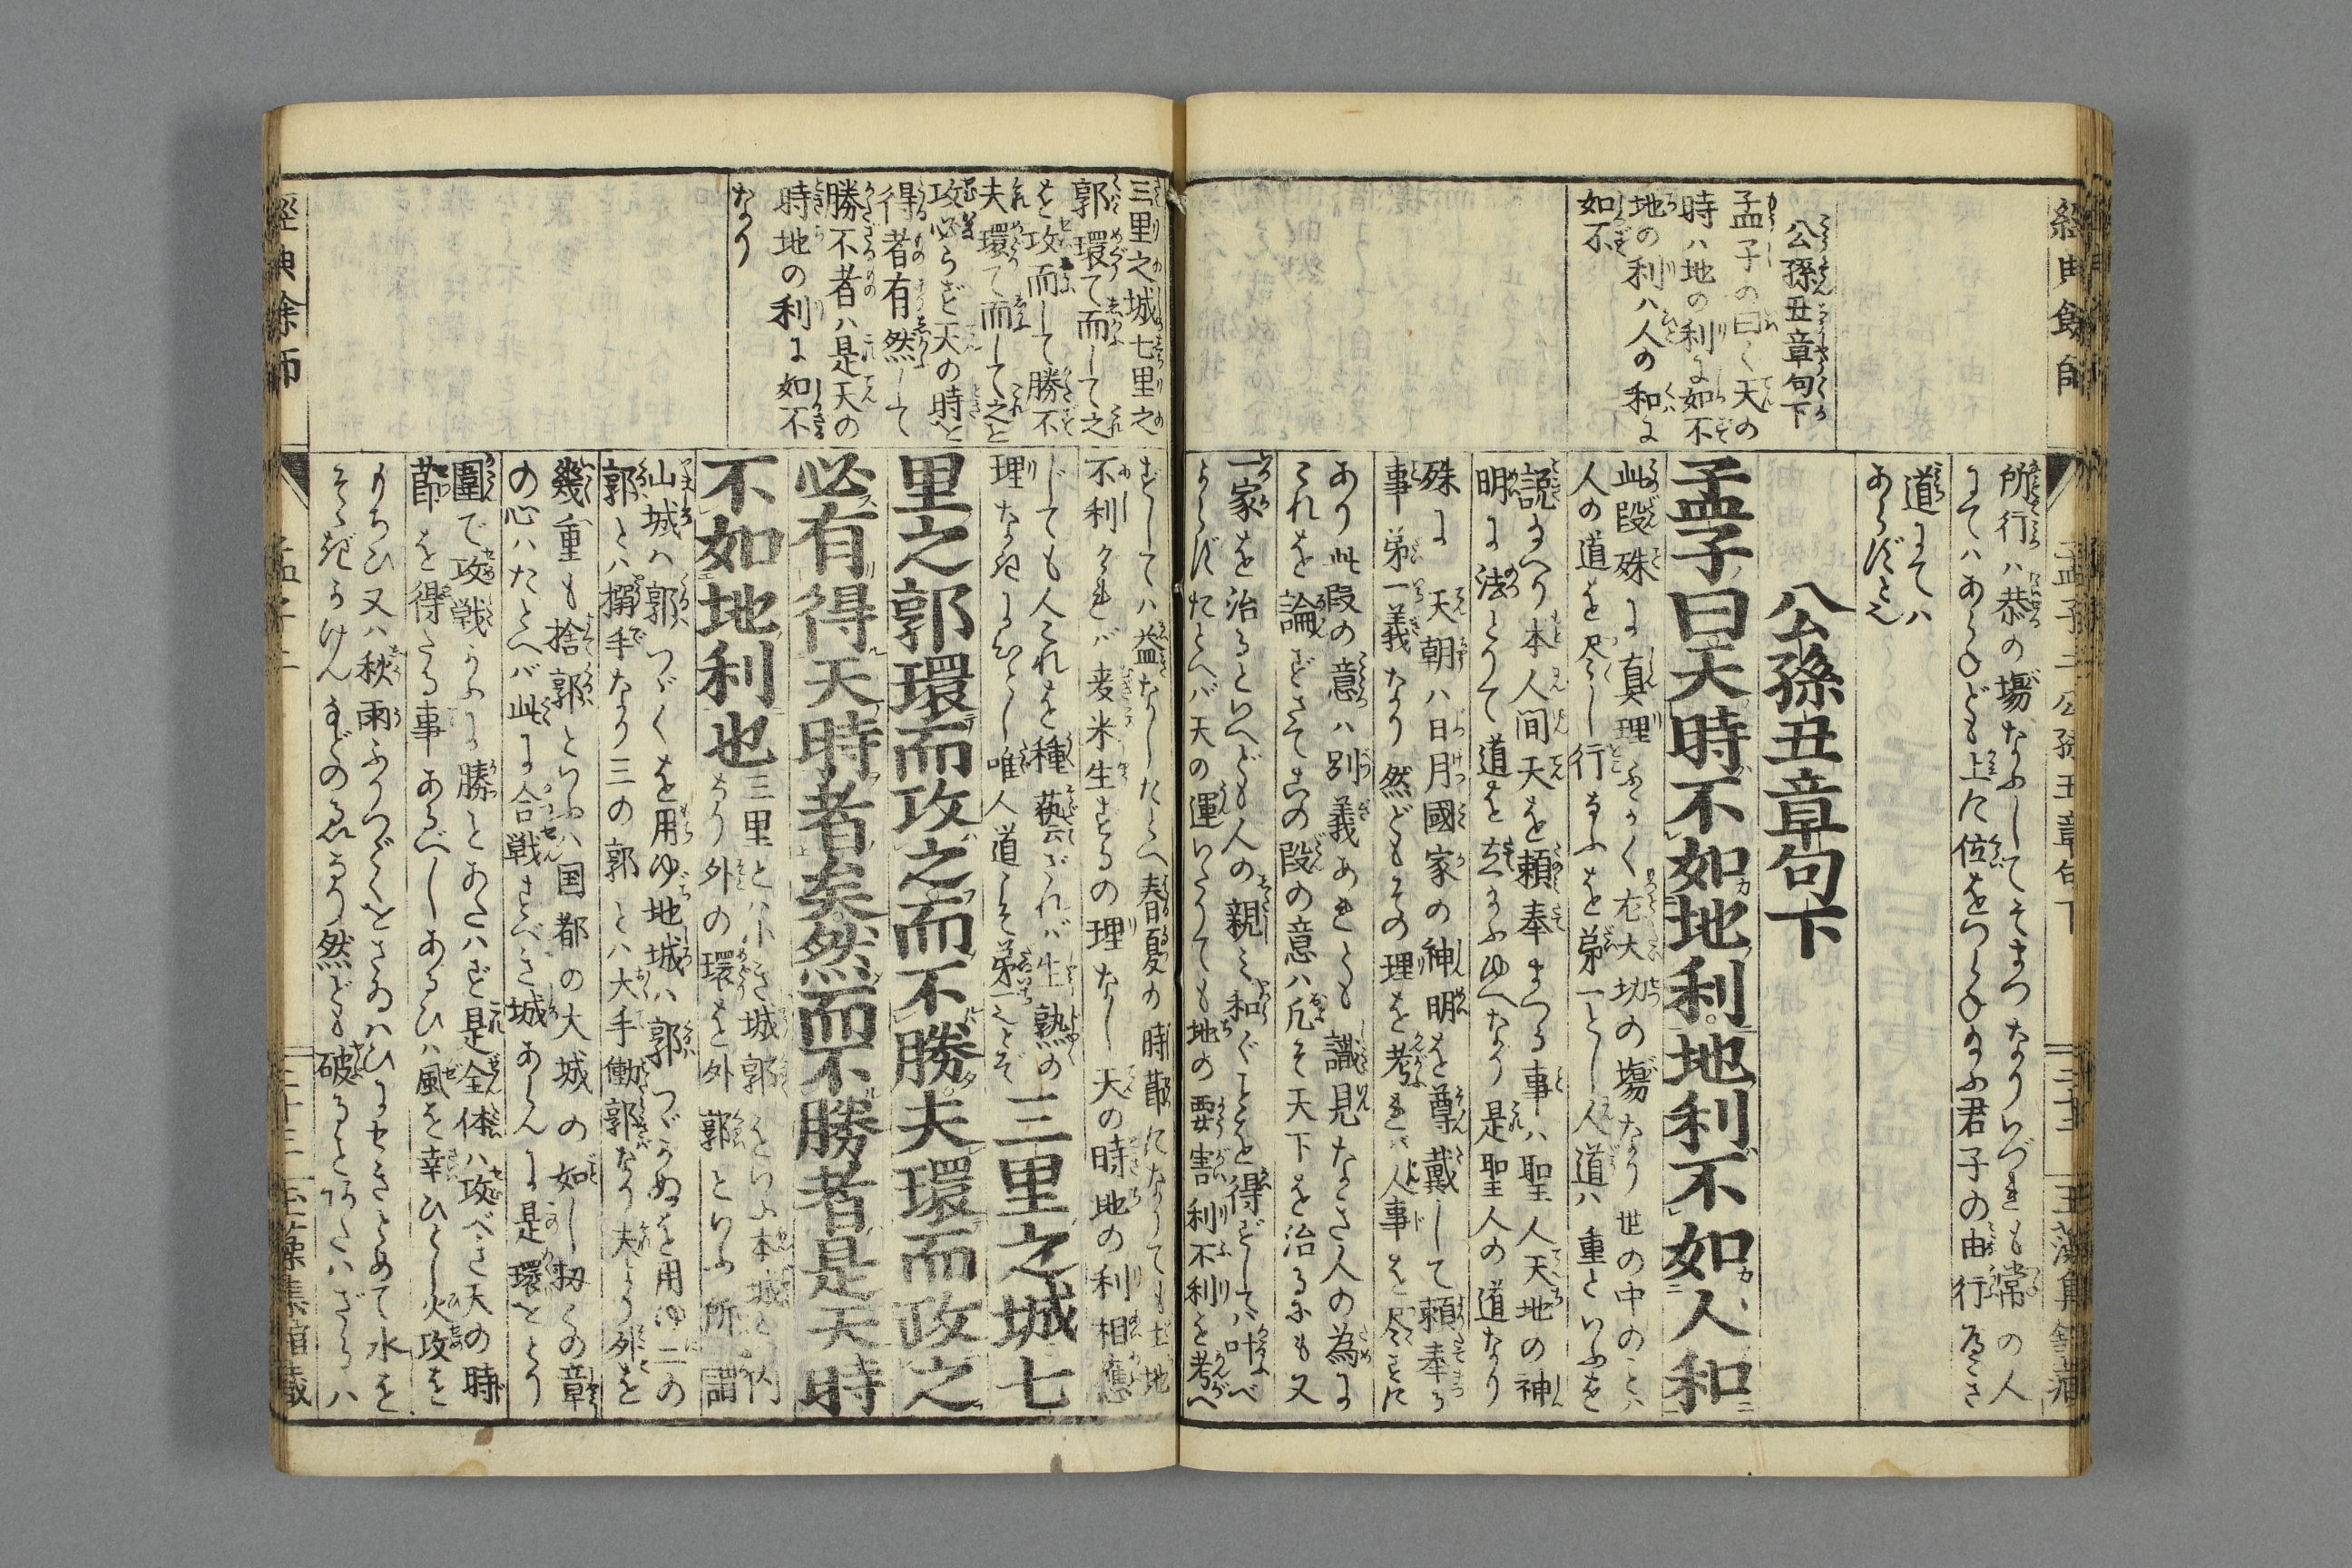 經典餘師
孟子二 公孫丑章句下
公孫丑章句下
孟子の曰く天の
時ハ地の利に如不
地の利ハ人の和に
如不
所行ハ恭の塲なふしてそまつなりいづれも常の人
にてハあらねども上た位をつらね給ふ君子の由行べき
道にてハ
あらずと也
公孫丑章句下
孟子曰天時不如地利。地利不如人和
此段殊に真理ふかく尤大切の塲なり世の中のことハ
人の道を尽し行なふを第一とし人道ハ重といふを
説給へり本人間天を頼奉まつる事ハ聖人天地の神
明に法とりて道を立給ふゆへなり是聖人の道なり
殊に天朝ハ日月國家の神明を尊戴して頼奉る
事第一義なり然どもその理を考れバ人事を尽さずに
あり此段の意ハ別義あれとも識見なき人の為に
これを論ずさて此の段の意ハ凡そ天下を治るにも又
一家を治るといへども人の親ミ和ぐことを得ずしてハ叶べ
からずたとへバ天の運いたりても地の要害利不利を考へ
三里之城七里之
郭環て而して之
を攻而して勝不
夫環て而して之を
攻必らず天の時を
得者有然して
勝不者ハ是天の
時地の利に如不
なり
ずしてハ益なしたとへ春夏の時節になりても土地
不利けれバ麦米生ずるの理なし天の時地の利相應
じても人これを種藝ざれバ生熟の
理なきにひとし唯人道こそ第一とぞ
三里之城七
里之郭環而攻之而不勝夫環而攻之
必有得天時者矣然而不勝者是天時
不如地利也
三里とハ小き城郭をいふ本城と内
なり外の環を外郭といふ所謂
山城ハ郭つゞくを用ゆ地城ハ郭つゞかぬを用ゆ二の
郭とハ搦手なり三の郭とハ大手働郭なり夫より外を
幾重も捨郭といふハ国都の大城の如し扨この章
の心ハたとへバ此に合戦すべき城あらんに是環をとり
圍で攻戦かふに勝とあたハず是全体ハ攻べき天の時
節を得たる事あるべしあるひハ風を幸ひとし火攻を
もちひ又ハ秋雨ふりつゞくをさゐハひにせきとめて水を
そゝぎかけんなどのゐなり然ども破るとあたハざるハ
經典餘師
孟子二